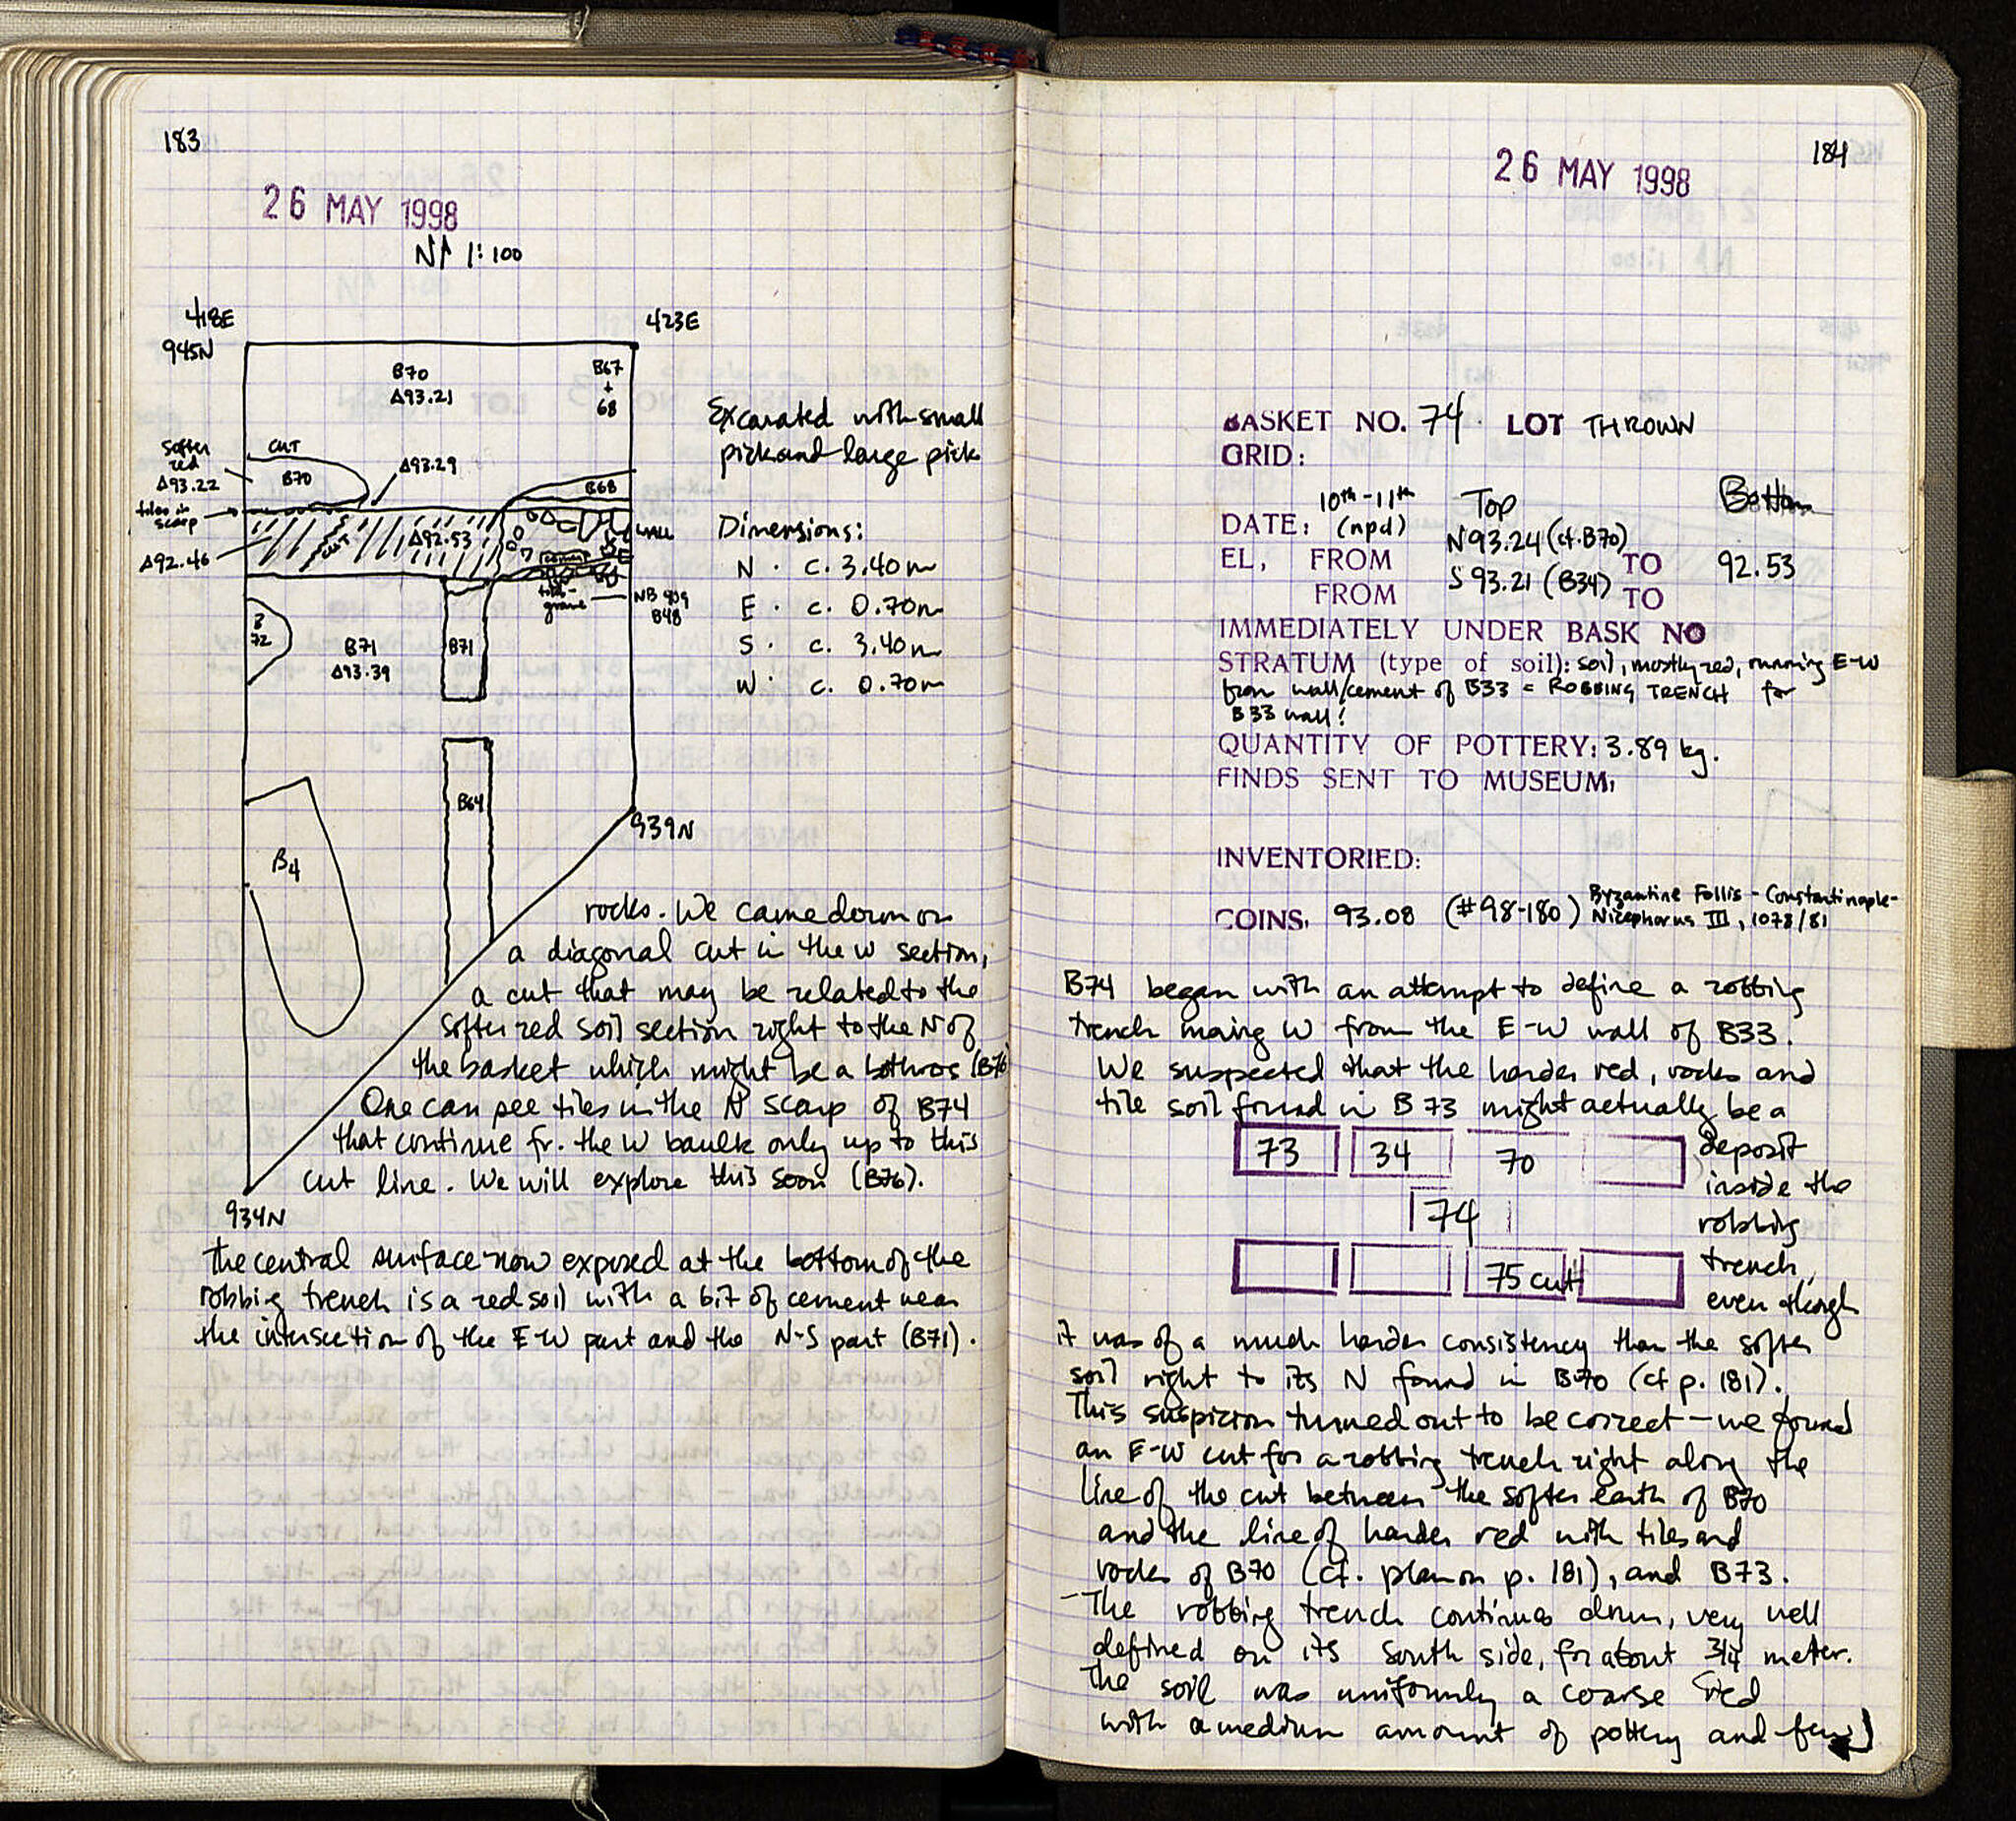 183
26 MAY 1998
N↑ 1:100
418E
423E
945N
B70
Δ93.21
B67
+
68
Excavated with small
pick and large pick
softer
red
Δ93.22
CUT
B70
Δ93.29
B68
tiles in
scarp
CUT
Δ92.53
WALL
Δ92.46
cement
tile-
grave
NB 839
B48
Dimensions:
N · c. 3.40m
E · c. 0.70m
S · c. 3.40m
W · c. 0.70m
B
72
B71
Δ93.39
B71
B64
939N
B4
rocks. We came down on
a diagonal cut in the W section,
a cut that may be related to the
softer red soil section right to the N of
the basket which might be a bothros (B76)
One can see tiles in the N scarp of B74
that continue fr. the W baulk only up to this
cut line. We will explore this soon (B76).
934N
The central surface now exposed at the bottom of the
robbing trench is a red soil with a bit of cement near
the intersection of the E-W part and the N-S part (B71).
184
26 MAY 1998
BASKET NO. 74 LOT THROWN
GRID:
10th-11th Top Bottom
DATE: (npd) N 93.24 (cf. B70)
EL, FROM TO 92.53
S 93.21 (B34)
FROM TO
IMMEDIATELY UNDER BASK NO
STRATUM (type of soil): soil, mostly red, running E-W
from wall/cement of B33 = ROBBING TRENCH for
B33 wall!
QUANTITY OF POTTERY: 3.89 kg.
FINDS SENT TO MUSEUM,
INVENTORIED:
COINS, 93.08 (#98-180) Byzantine Follis - Constantinople-
Nicephorus III, 1078/81
B74 began with an attempt to define a robbing
trench moving W from the E-W wall of B33.
We suspected that the harder red, rocks and
tile soil found in B73 might actually be a
73 34 70 deposit
inside the
74 robbing
75 cut trench,
even though
it was of a much harder consistency than the softer
soil right to its N found in B70 (cf p. 181).
This suspicion turned out to be correct - we found
an E-W cut for a robbing trench right along the
line of the cut between the softer earth of B70
and the line of harder red with tiles and
rocks of B70 (cf. plan on p. 181), and B73.
- The robbing trench continues down, very well
defined on its south side, for about 3/4 meter.
The soil was uniformly a coarse red
with a medium amount of pottery and few